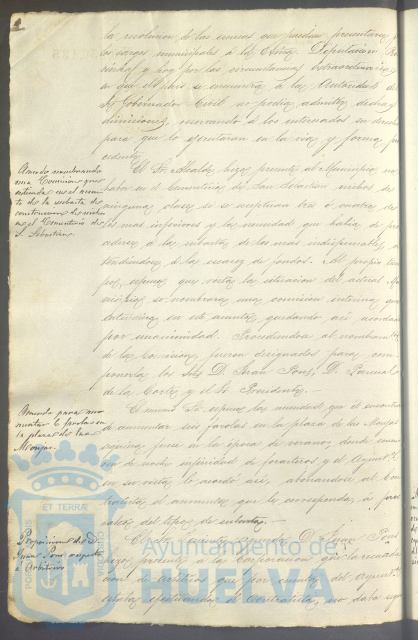 la resolucion de las causas que puedan presentarse
los cargos municipales á la Excma. Diputacion Pro
vincial y hoy por las circunstancias extraordinarias
en que el país se encuentra á la Autoridad de
Sr. Gobernador Civil no podia admitir dichas
dimisiones, reservando á los interesados su derecho
para que lo ejercitaran en la via y forma pro
cedente.
Acuerdo nombrando
una Comision que
entienda en el asun
to de la subasta de
construccion de nichos
en el Cementerio de
S. Sebastian.
El Sr. Alcalde hizo presente al Municipio no
haber en el Cementerio de San Sebastian nichos de
ninguna clase si se exceptúan tres ó cuatro de
los mas inferiores y la necesidad que habia de pro
ceder á la subasta de los mas indispensables, a
tendiendo á la escasez de fondos. Al propio tiem
po, espuso que vista la situacion del actual Mu
nicipio se nombrara una comision interina que
entendiera en este asunto, quedando asi acordado
por unanimidad. Procediendose al nombramto
de la comision, fueron designados para com
ponerla los Sres D. Juan Pons, D. Pascual
de la Corte y el Sr. Presidente.
Acuerdo para au
mentar 6 farolas en
la plaza de las
Monjas.
El mismo Sr. espuso la necesidad que se encontraba
de aumentar seis farolas en la plaza de las Monjas
en la época de verano donde
de noche infinidad de forasteros y el Ayuntº
en su vista lo acordó asi, abonandole al con
tratista el aumento que le corresponda á pro
rata del tipo de subasta.
Proposicion de D.
Juan Pons respecto
á Arbitrios
Dada cuenta D. Juan Pons
hizo presente á la Corporacion que la recauda
cion de arbitrios que por cuenta del Ayuntº
estaba efectuando el Contratista, no daba
PORTUS
ET TERRA
Ayuntamiento de
HUELVA